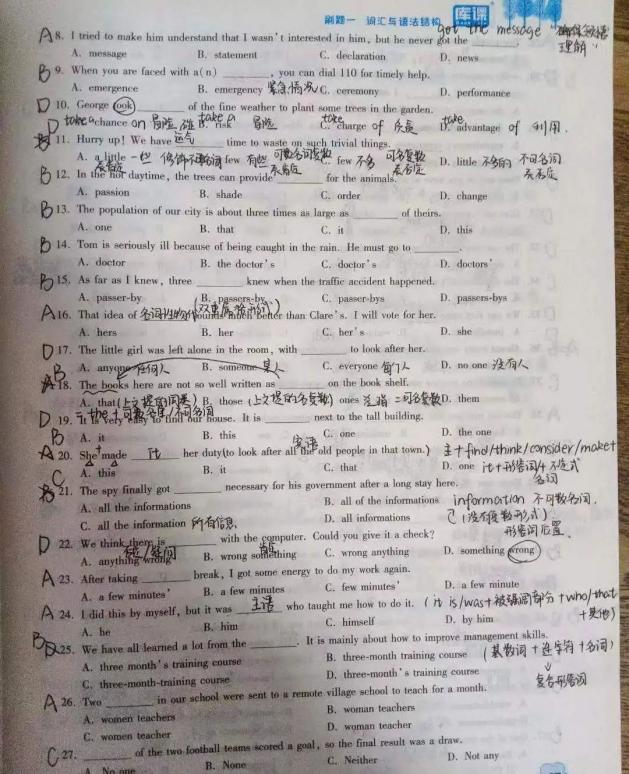 刷题一 词汇与语法结构 库课
A 8. I tried to make him understand that I wasn't interested in him, but he never got the ______. get the message
理解"
A. message B. statement C. declaration D. news
B 9. When you are faced with a(n) ______, you can dial 110 for timely help.
A. emergence B. emergency 紧急情况 C. ceremony D. performance
D 10. George took ______ of the fine weather to plant some trees in the garden.
A. chance on 冒险 B. risk 冒险 C. charge of 负责 D. advantage of 利用.
11. Hurry up! We have ______ time to waste on such trivial things.
A. a little 一些 B. few 有些 C. few 不多 D. little 不多的 不可名词
B 12. In the hot daytime, the trees can provide ______ for the animals. 表否定
A. passion B. shade C. order D. change
B 13. The population of our city is about three times as large as ______ of theirs.
A. one B. that C. it D. this
B 14. Tom is seriously ill because of being caught in the rain. He must go to ______.
A. doctor B. the doctor's C. doctor's D. doctors'
B 15. As far as I knew, three ______ knew when the traffic accident happened.
A. passer-by B. passers-by C. passer-bys D. passers-bys
A 16. That idea of ______ sounds much better than Clare's. I will vote for her.
A. hers B. her C. her's D. she
D 17. The little girl was left alone in the room, with ______ to look after her.
A. anyone 任何人 B. someone 某人 C. everyone 每个人 D. no one 没有人
18. The books here are not so well written as ______ on the book shelf.
A. that B. those C. ones 泛指 D. them
D 19. It is very easy to find our house. It is ______ next to the tall building.
A. it B. this C. one D. the one
A 20. She made It her duty(to look after all the old people in that town.) 主+find/think/consider/make+
A. this B. it C. that D. one it+形容词/+不定式
名词
21. The spy finally got ______ necessary for his government after a long stay here.
A. all the informations B. all of the informations information 不可数名词.
C. all the information 所有信息. D. all informations (没有复数形式)
形容词后置.
D 22. We think there is ______ with the computer. Could you give it a check?
A. anything wrong B. wrong something C. wrong anything D. something wrong
A 23. After taking ______ break, I got some energy to do my work again.
A. a few minutes' B. a few minutes C. few minutes' D. a few minute
A 24. I did this by myself, but it was 主语 who taught me how to do it. (it is/was+被强调部分+who/that
+其他)
A. he B. him C. himself D. by him
B 25. We have all learned a lot from the ______. It is mainly about how to improve management skills.
A. three month's training course B. three-month training course (基数词+连字符+名词)
C. three-month-training course D. three-month's training course
复合形容词
A 26. Two ______ in our school were sent to a remote village school to teach for a month.
A. women teachers B. woman teachers
C. women teacher D. woman teacher
C 27. ______ of the two football teams scored a goal, so the final result was a draw.
A. No one B. None C. Neither D. Not any